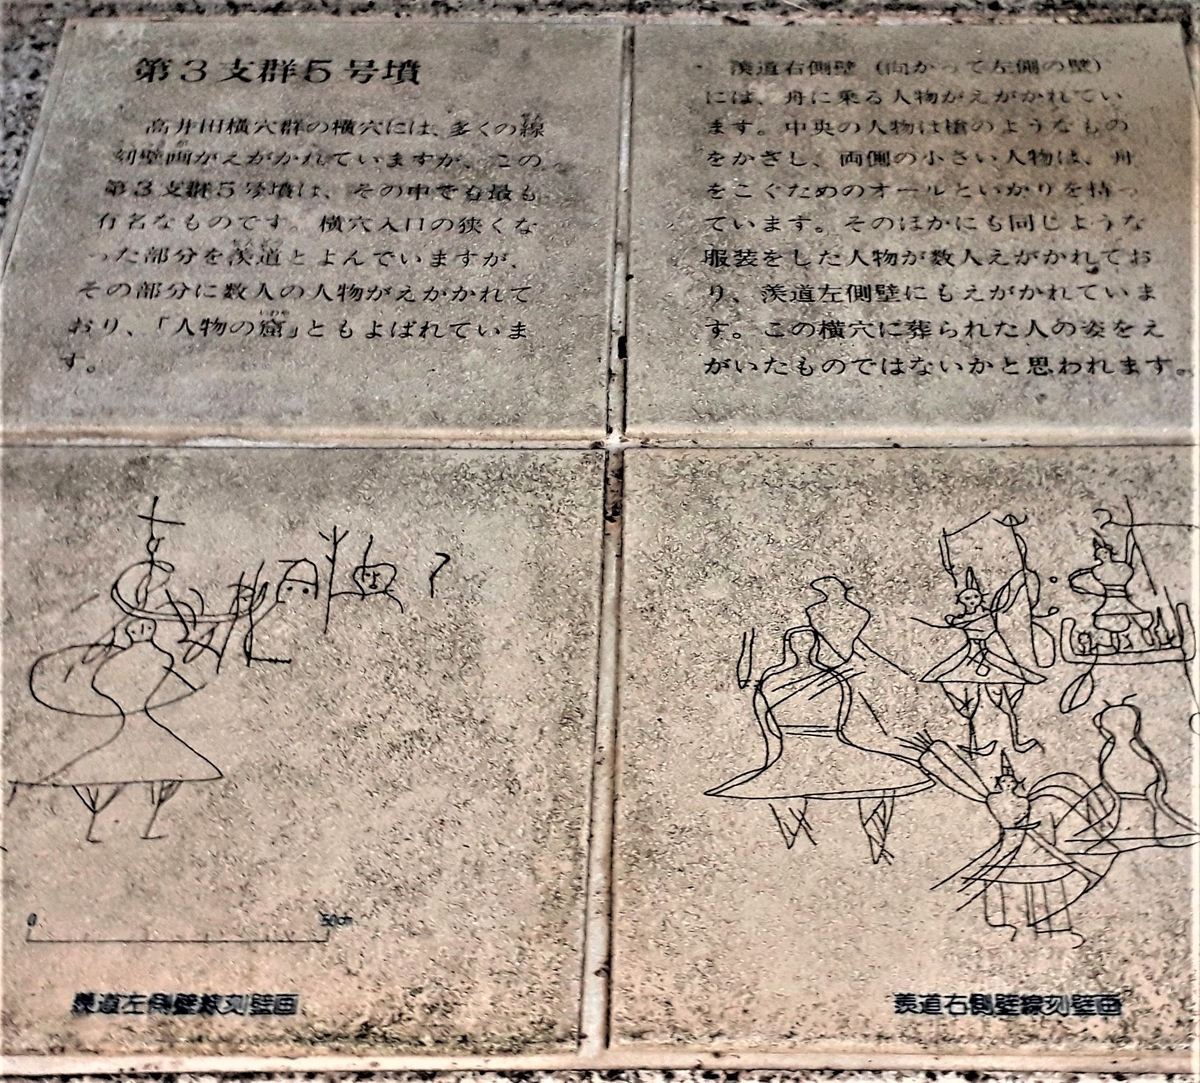 第3支群5号墳
高井田横穴群の横穴には、多くの線
刻壁画がえがかれていますが、この
第3支群5号墳は、その中でも最も
有名なものです。横穴入口の狭くな
った部分を羨道とよんでいますが、
その部分に数人の人物がえがかれて
おり、「人物の窟」ともよばれていま
す。
羨道右側壁（向かって左側の壁）
には、舟に乗る人物がえがかれてい
ます。中央の人物は槍のようなもの
をかざし、両側の小さい人物は、舟
をこぐためのオールといかりを持っ
ています。そのほかにも同じような
服装をした人物が数人えがかれてお
り、羨道左側壁にもえがかれていま
す。この横穴に葬られた人の姿をえ
がいたものではないかと思われます。
0 50cm
羨道左側壁線刻壁画
羨道右側壁線刻壁画